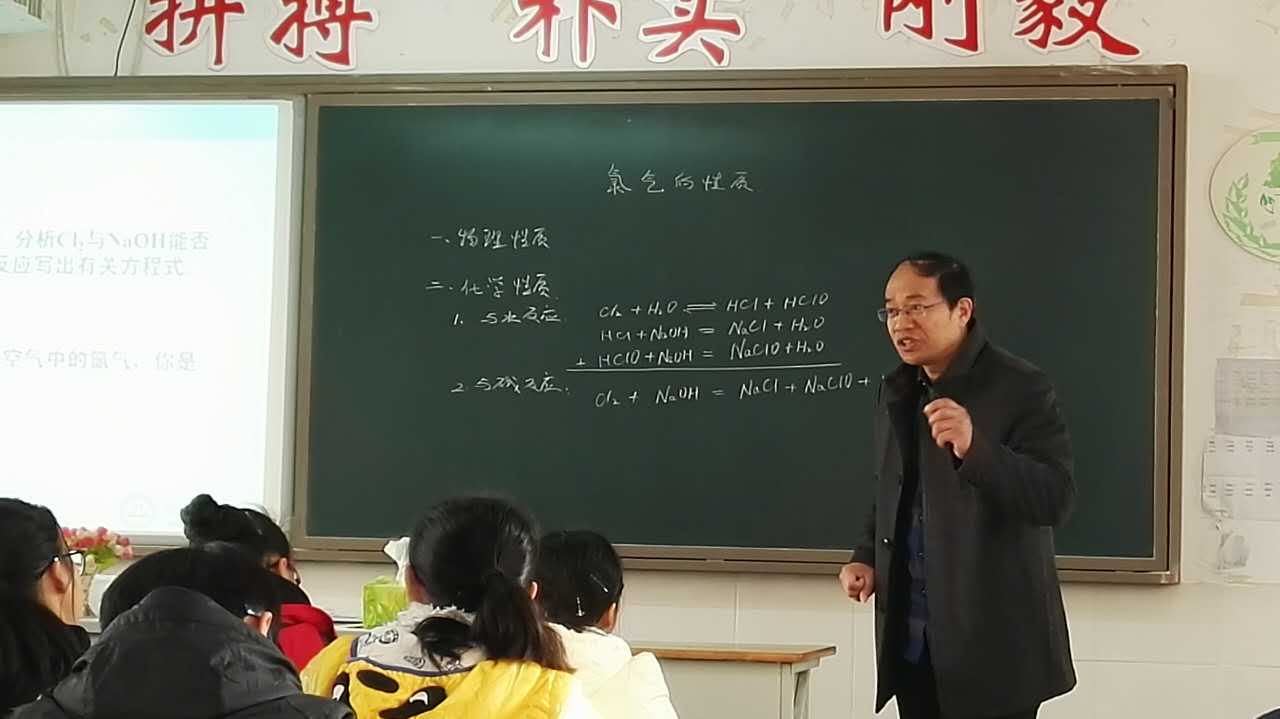 拼搏 朴实 刚毅
分析Cl₂与NaOH能否
反应写出有关方程式
空气中的氯气，你是
氯气的性质
一、物理性质
二、化学性质
1. 与水反应: Cl₂ + H₂O ⇌ HCl + HClO
HCl + NaOH = NaCl + H₂O
+ HClO + NaOH = NaClO + H₂O
2. 与碱反应: Cl₂ + NaOH = NaCl + NaClO +